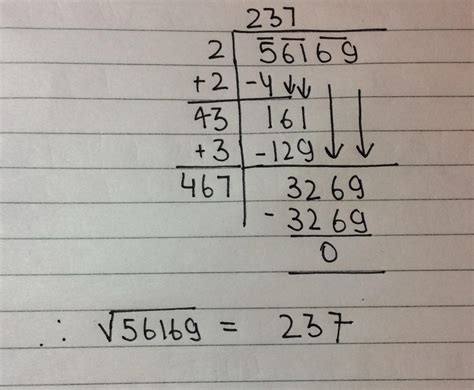 237
2 56169
+2 -4
43 161
+3 -129
467 3269
- 3269
0
∴ √56169 = 237